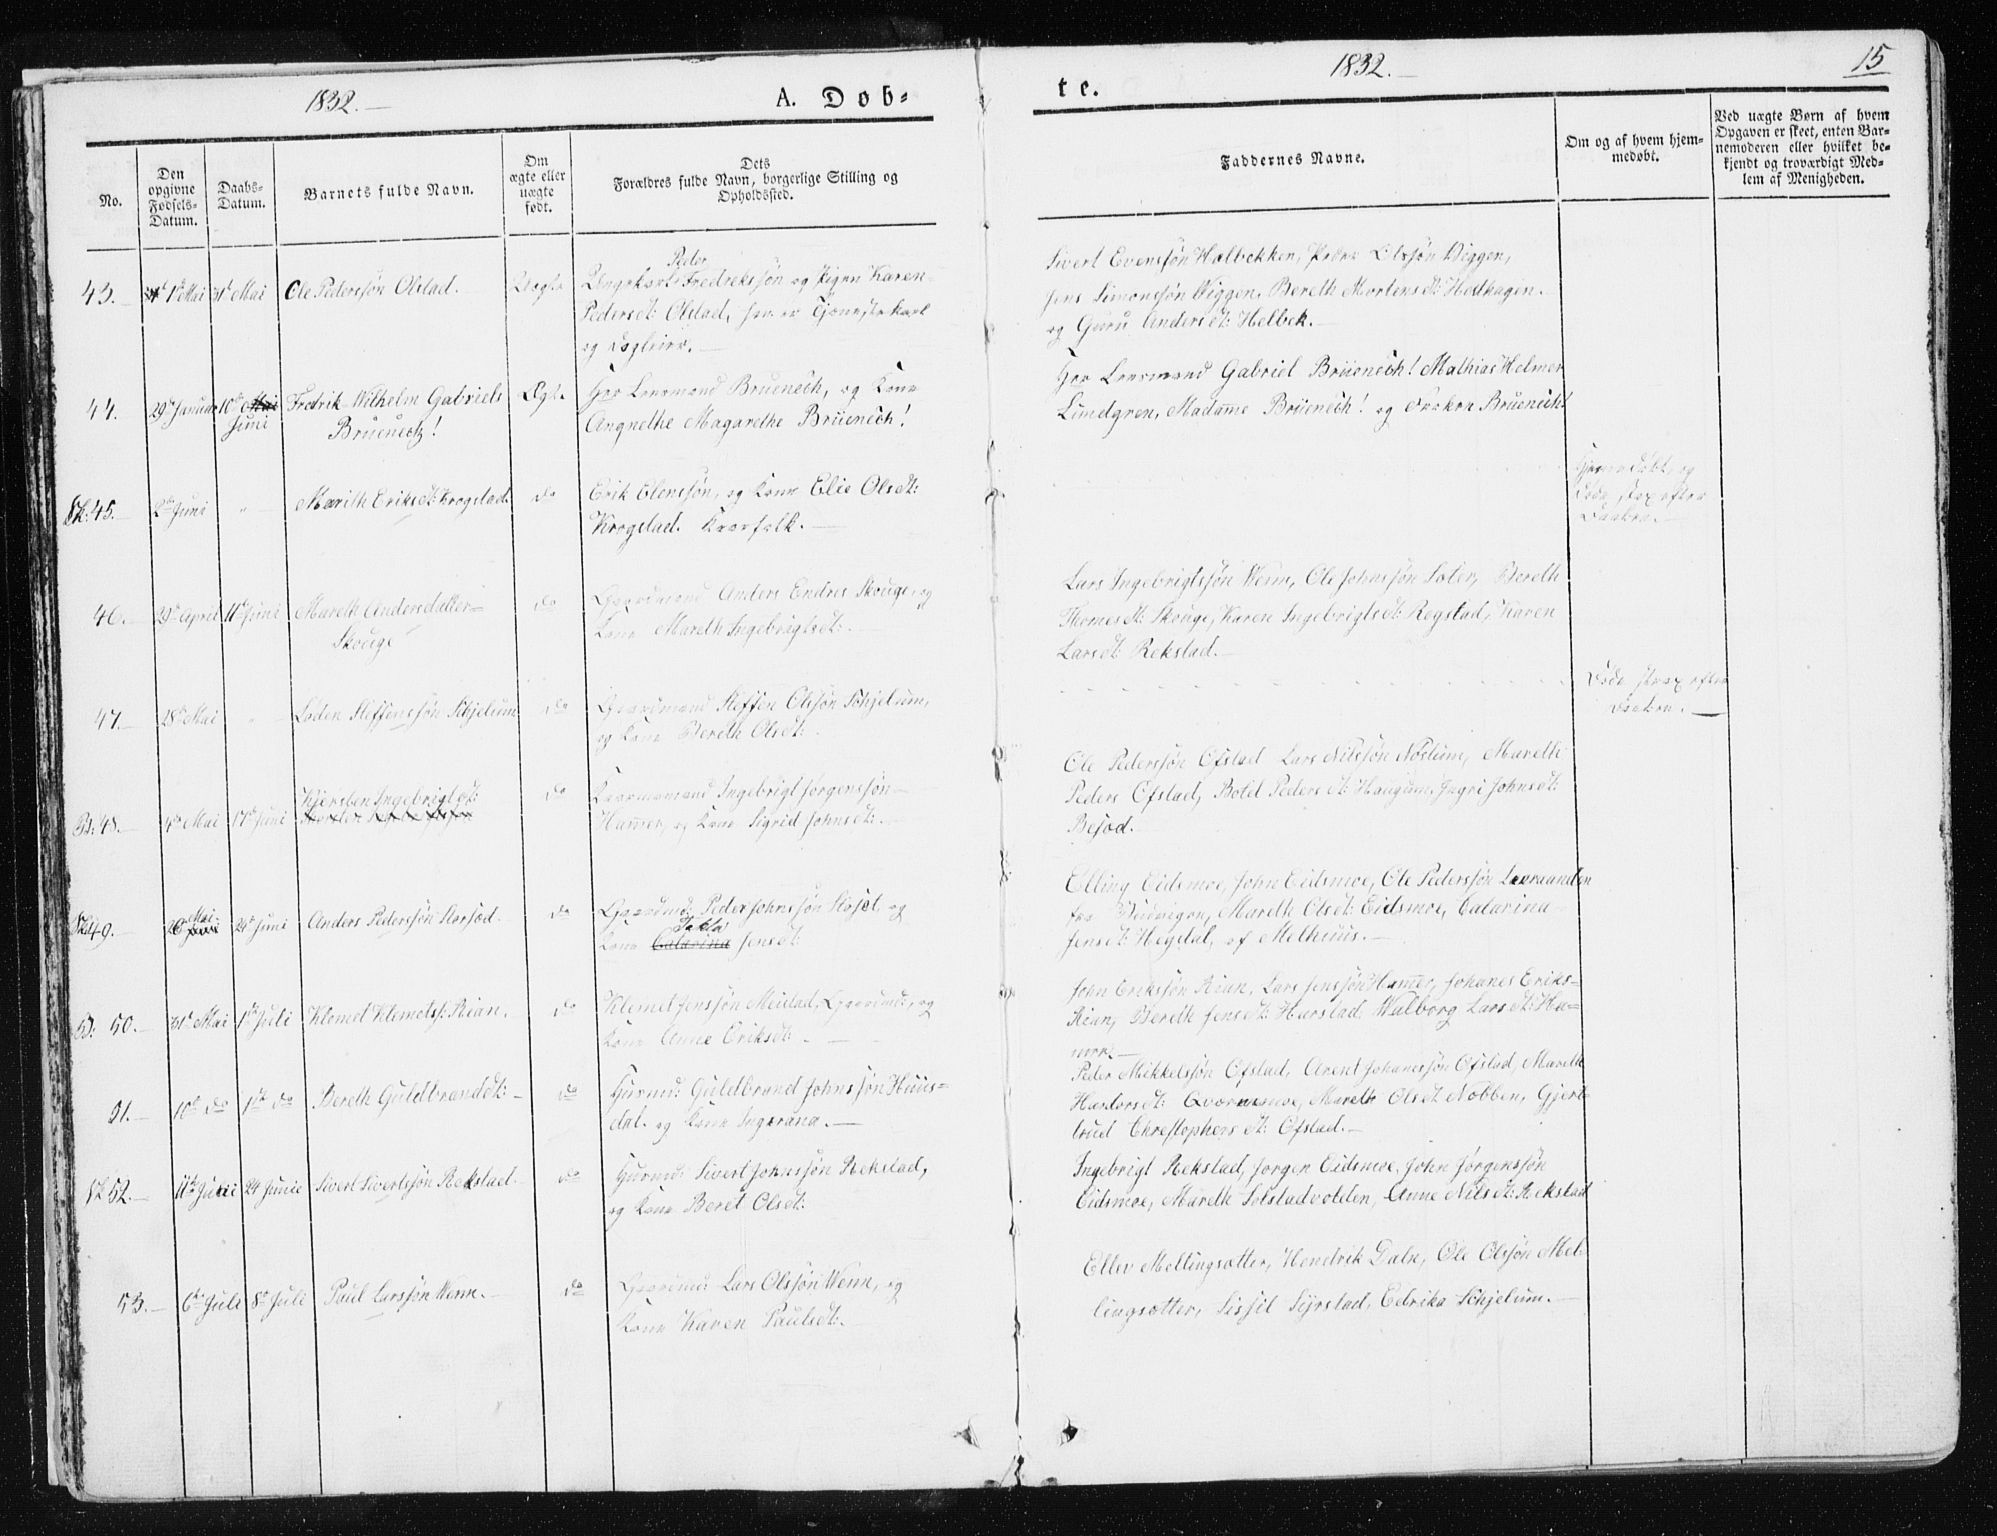 1832.—
A. Døb-
te.
1832.—
15
No.
Den opgivne Fødsels-Datum.
Daabs-Datum.
Barnets fulde Navn.
Om ægte eller uægte født.
Dets Forældres fulde Navn, borgerlige Stilling og Opholdssted.
Faddernes Navne.
Om og af hvem hjemmedøbt.
Ved uægte Børn af hvem Opgaven er skeet, enten Barnemoderen eller hvilket bekjendt og troværdigt Medlem af Menigheden.
43. 1st Mai 31t Mai Ole Pederssøn Ofstad. Uægte
Peder
Ungekarl Fredrekssøn og pigen Karen
Pedersdt: Ofstad, han er Tjenestekarl
og Dagleier.—
Sivert Evenssøn Hælbekken, Peder Olssøn Viggen,
Jens Simonssøn Viggen, Bereth Mortensdt: Hedhagen.
og Guru Andersdt: Helbek.—
44. 29de Januar 10de Juni Fredrik Wilhelm Gabriels
Brüenech! Ægte
Hrr Lensmand Brüenech, og Kone
Angnethe Magarethe Brüenech!
Hrr Lensmand Gabriel Brüenech! Mathias Helmer
Lindgren, Madame Brüenech! og Frøken Brüenech!
45. 2den Juni " Marith Eriksdt: Krogstad. do
Erik Elenssøn, og Kone Elie Olsdt:
Krogstad. Kaarfolk.—
Hjemmedøbt, og
Døde strax efter
Daaben.—
46. 29de April 11te Juni Mareth Andersdatter
Skouge do
Gaardmand Anders Endres Skouge, og
Kone Mareth Ingebrigtsdt:—
Lars Ingebrigtssøn Wenn, Ole Johnssøn Loter, Bereth
Thomesdt: Skouge, Karen Ingebrigtsdt: Rogstad, Karen
Larsdt: Rekstad.—
47. 28de Mai " Loden Steffenssøn Schjelum do
Gaardmand Steffen Olssøn Schjelum,
og Kone Bereth Olsdt:
Døde strax efter
Daaben.—
48. 4de Mai 17de Juni Kjersten Ingebrigtsdt: do
Kaarmand Ingebrigt Jørgenssøn
Hammer, og Kone Sigrid Johnsdt:—
Ole Pederssøn Ofstad Lars Nilssøn Nøstum, Mareth
Peders Ofstad, Botel Pedersdt: Haugum, Ingri Johnsdt:
Besød.
49. 20 Mai 24de Juni Anders Pederssøn Storsød. do
Gaardmd: Peder Johnssøn Stosøt, og
Kone Catarina Jensdt:
Elling Eidsmoe, John Eidsmoe, Ole Pederssøn
fra Budvigen, Mareth Olsdt: Eidsmoe, Catarina
Jensdt: Hegdal, af Melhuus.—
50.— 31t Mai 1ste Juli Klemet Klemets: Rian. do
Klemet Jenssøn Meistad, Gaardmd:, og
Kone Anne Eriksdt:—
John Erikssøn Rian, Lars Jenssøn Hamer, Johanes Eriks-
Rian, Bereth Jensdt: Harstad, Walborg Larsdt: Ha-
mer.—
51.— 10de do 1ste do Bereth Guldbrandsdt:— do
Huusmd: Guldbrand Johnssøn Huus-
dal. og Kone Ingerana.—
Peder Mikkelssøn Ofstad, Arent Johanessøn Ofstad, Mareth
Haldorsdt: Qværnmoe, Mareth Olsdt Nobben, Gjert-
trud Christophersdt: Ofstad.—
52.— 11te Juni 24 Junie Sivert Sivertssøn Rekstad. do
Huusmd: Sivert Johnssøn Rekstad,
og Kone Beret Olsdt:
Ingebrigt Rekstad, Jørgen Eidsmoe, John Jørgenssøn
Eidsmoe, Mareth Solstadvolden, Anne Nilsdt: Rekstad
53.— 6te Juli 8de Juli Paul Larssøn Wenn.— do
Gaardmd: Lars Olssøn Wenn, og
Kone Karen Paulsdt:—
Ellev Mellingsætter, Hendrik Dale, Ole Olssøn Mel-
lingsætter, Sissil Syrstad, Edrika Schjelum.—